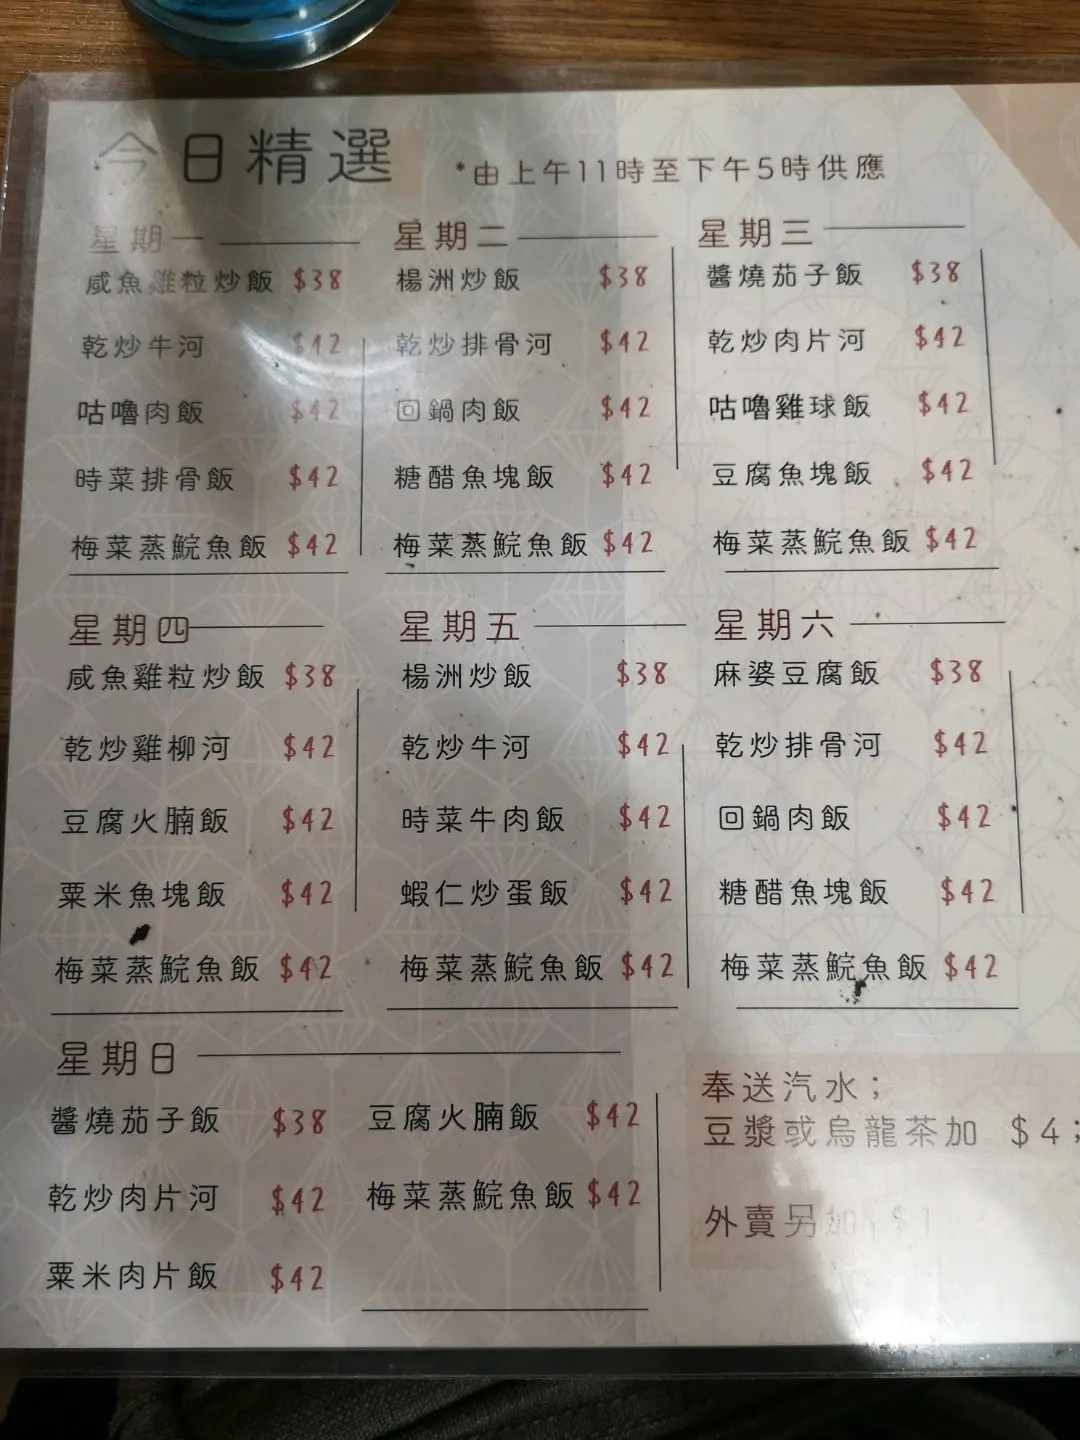 今日精選
*由上午11時至下午5時供應
星期一
咸魚雞粒炒飯 $38
乾炒牛河 $42
咕嚕肉飯 $42
時菜排骨飯 $42
梅菜蒸鯇魚飯 $42
星期二
楊洲炒飯 $38
乾炒排骨河 $42
回鍋肉飯 $42
糖醋魚塊飯 $42
梅菜蒸鯇魚飯 $42
星期三
醬燒茄子飯 $38
乾炒肉片河 $42
咕嚕雞球飯 $42
豆腐魚塊飯 $42
梅菜蒸鯇魚飯 $42
星期四
咸魚雞粒炒飯 $38
乾炒雞柳河 $42
豆腐火腩飯 $42
粟米魚塊飯 $42
梅菜蒸鯇魚飯 $42
星期五
楊洲炒飯 $38
乾炒牛河 $42
時菜牛肉飯 $42
蝦仁炒蛋飯 $42
梅菜蒸鯇魚飯 $42
星期六
麻婆豆腐飯 $38
乾炒排骨河 $42
回鍋肉飯 $42
糖醋魚塊飯 $42
梅菜蒸鯇魚飯 $42
星期日
醬燒茄子飯 $38
乾炒肉片河 $42
粟米肉片飯 $42
豆腐火腩飯 $42
梅菜蒸鯇魚飯 $42
奉送汽水；
豆漿或烏龍茶加 $4；
外賣另加 $1